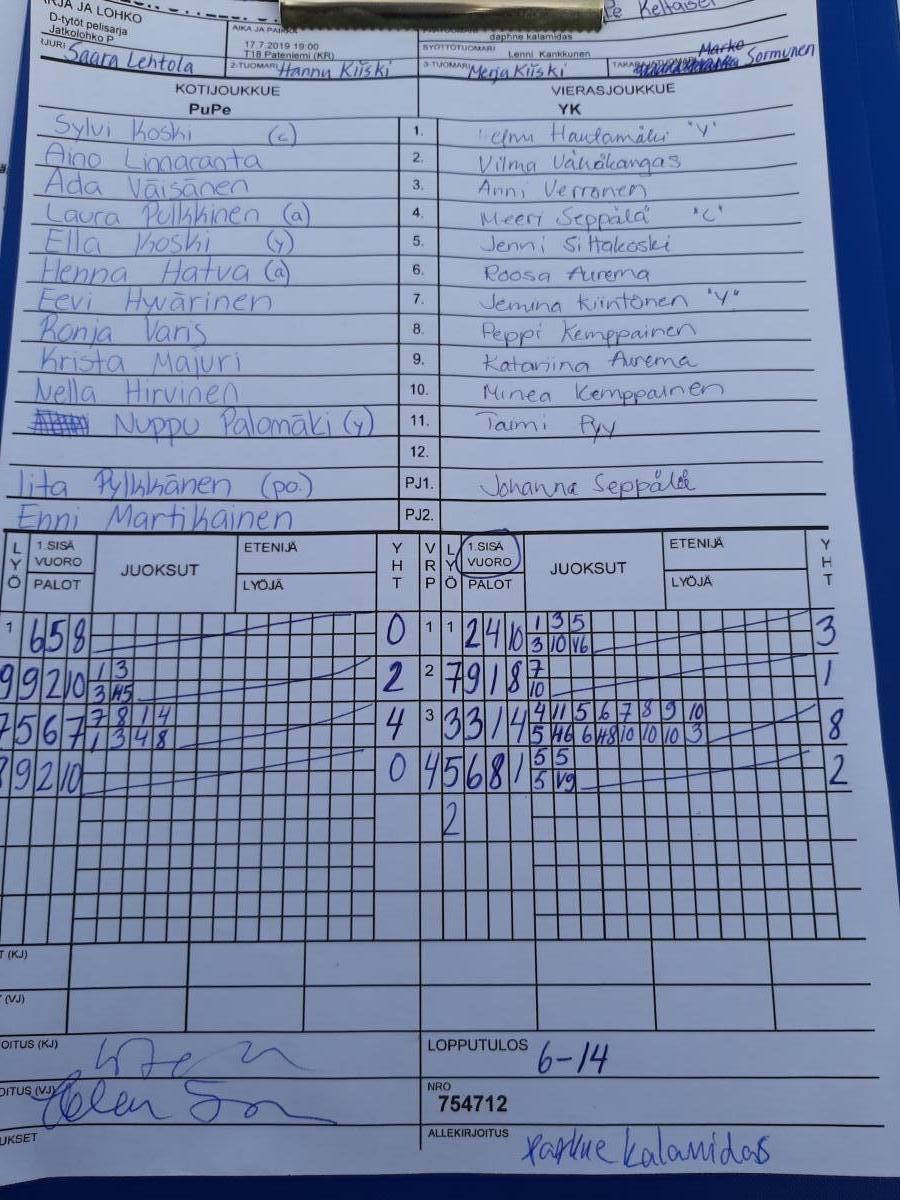 RJA JA LOHKO
D-tytöt pelisarja
Jatkolohko P
AIKA JA PAIKKA
17.7.2019 19:00
T18 Pateniemi (KR)
Keltaiset
daphne kalamidas
SYÖTTÖTUOMARI Lenni Kankkunen
Saara Lehtola
2-TUOMARI Hannu Kiiski
3-TUOMARI Merja Kiiski
Marko Sormunen
KOTIJOUKKUE VIERASJOUKKUE
PuPe YK
Sylvi Koski (c) 1. Hautamäki "Y"
Aino Linnaranta 2. Vilma Vähäkangas
Ada Väisänen 3. Anni Verronen
Laura Pulkkinen (a) 4. Meeri Seppälä "C"
Ella Koski (y) 5. Jenni Siltakoski
Henna Hatva (a) 6. Roosa Aurema
Eevi Hyvärinen 7. Jemina Kiintonen "Y"
Ronja Varis 8. Peppi Kemppainen
Krista Majuri 9. Katariina Aurema
Nella Hirvinen 10. Minea Kemppainen
Nuppu Palomäki (y) 11. Taimi Pyy
12.
Iita Pylkkänen (po.) PJ1. Johanna Seppälä
Enni Martikainen PJ2.
LYÖ 1.SISÄ VUORO JUOKSUT ETENIJÄ YHT VRP LYÖ 1.SISÄ VUORO JUOKSUT ETENIJÄ YHT
PALOT LYÖJÄ PALOT LYÖJÄ
1 6 5 8 0 1 1 2 4 10 1 3 5 3
3 10 V6
9 9 2 10 1 3 2 2 7 9 1 8 7 1
3 H5 10
7 5 6 7 7 8 1 4 4 3 3 3 1 4 4 11 5 6 7 8 9 10 8
1 3 4 8 5 H6 6 H8 10 10 10 3
9 2 10 0 4 5 6 8 1 5 5 2
5 V9
2
T (KJ)
(VJ)
OITUS (KJ)
LOPPUTULOS 6-14
OITUS (VJ)
NRO
754712
UKSET
ALLEKIRJOITUS kalamidas